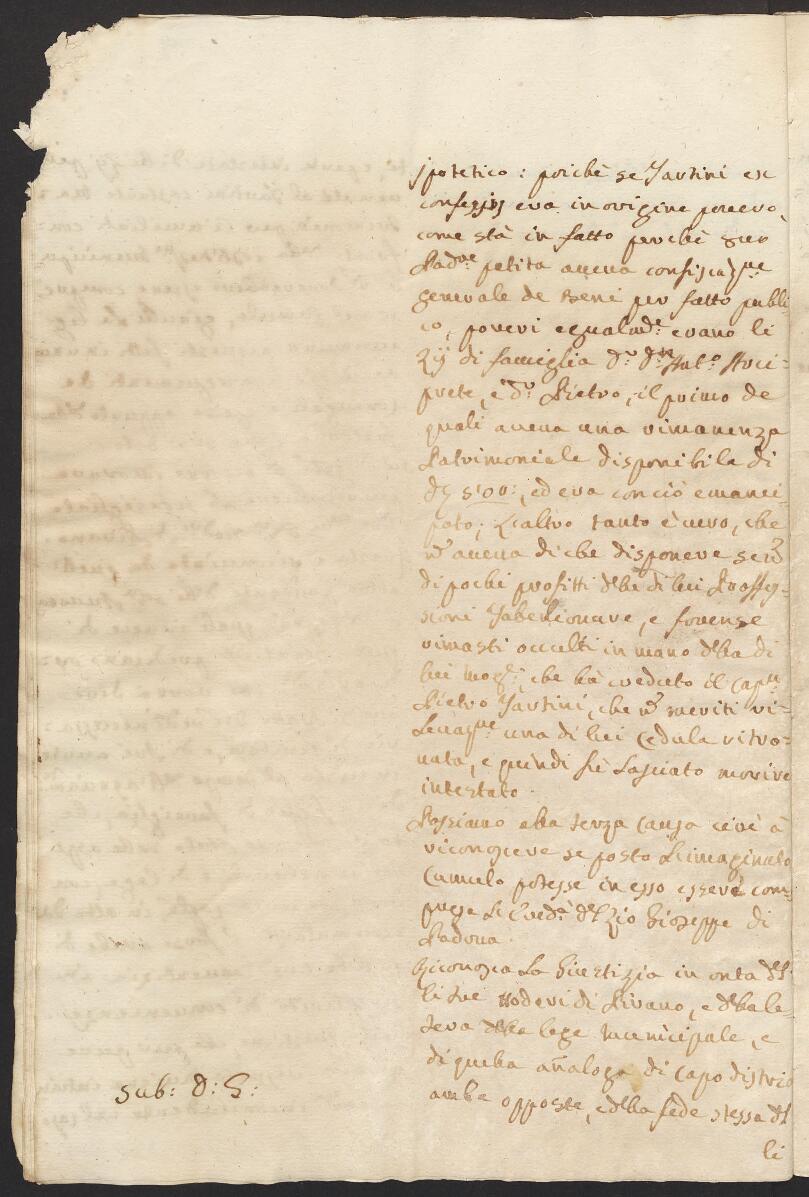 ipotetico: poichè se Tartini ex
confessis era in origine povero,
come stà in fatto perchè suo
Padre patita aueua confiscazne
generale de Beni per fatto publi
co, poueri egualmte: erano li
Zij di famiglia Dr. Dn Anto: Arci-
prete, e Dr. Pietro, il primo de
quali aueua una rimanenza
Patrimoniale disponibile di
D 500:, ed era conciò emanci
pato; L'altro tanto è uero, che
non aueua di che disponere se non
di pochi profitti della di lui Profes-
sione Tabelionare, e forense
rimasti occulti in mano della di
lui Moglie, che hà creduto il Capn
Pietro Tartini, che non meriti ri-
leuaque una di lui Cedula ritro-
uata, e quindi si è lasciato morire
intestato.
Passiamo alla terza Causa cioè à
riconoscere se posto l'imaginato
Cumulo potesse in esso essere com-
presa l'Ered.à del Zio Gioseppe di
Padova.
Riconosca La Giustizia in onta del
li due Poderi di Pirano, e della le-
tera della lege Municipale, e
di quella añaloga di Capodistria
ambe opposte, e della fede stessa del
li
Sub: D: G: